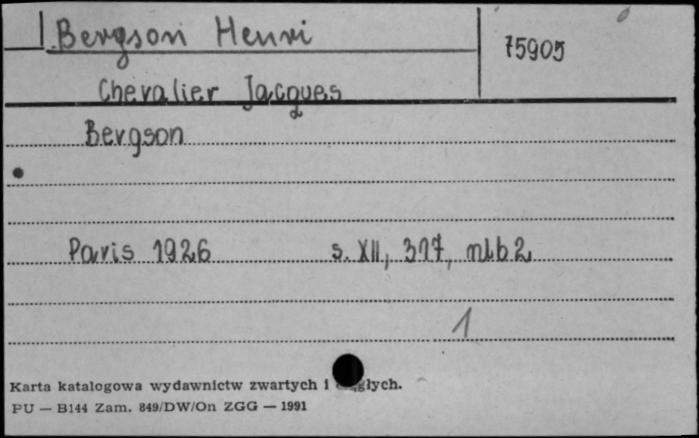 Bergson Henri
75905
Chevalier Jacques
Bergson
Paris 1926 s. XII, 317, nlb 2
1
Karta katalogowa wydawnictw zwartych i
PU — B144 Zam. 849/DW/On ZGG — 1991